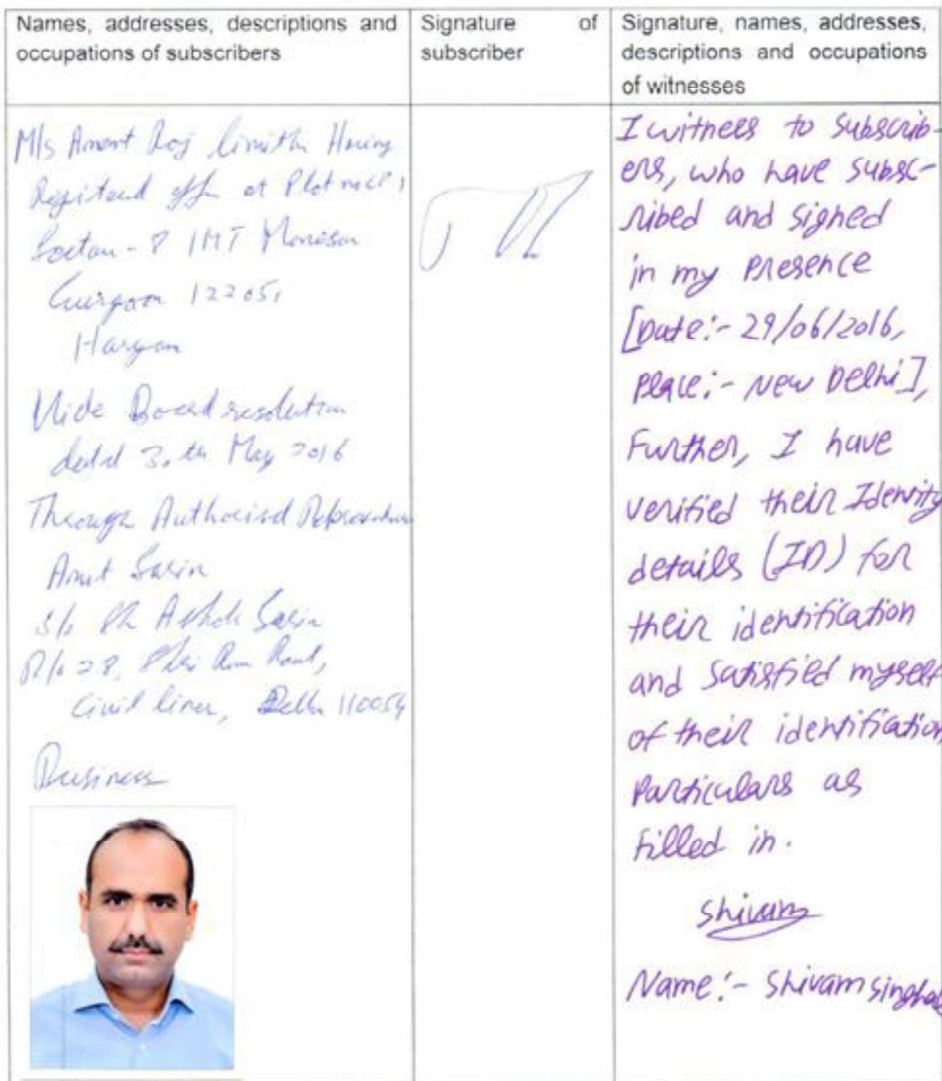 Names, addresses, descriptions and
occupations of subscribers
Signature of
subscriber
Signature, names, addresses,
descriptions and occupations
of witnesses
M/s Amart Raj Limith Having
Registered off at Plot no
Sector-8 IMT Manesar
Gurgaon 122051
Haryana
Vide Board resolution
dated 30th May 2016
Through Authorised Representative
Amit Sarin
S/o Sh Ashok Sarin
R/o 28, Shri Ram Road,
Civil lines, Delhi 110054
Business
I witness to subscrib-
ers, who have subsc-
ribed and signed
in my presence
[Date:- 29/06/2016,
Place:- New Delhi],
Further, I have
verified their Identity
details (ID) for
their identification
and satisfied myself
of their identification
particulars as
filled in.
Shivam
Name:- Shivam Singhal